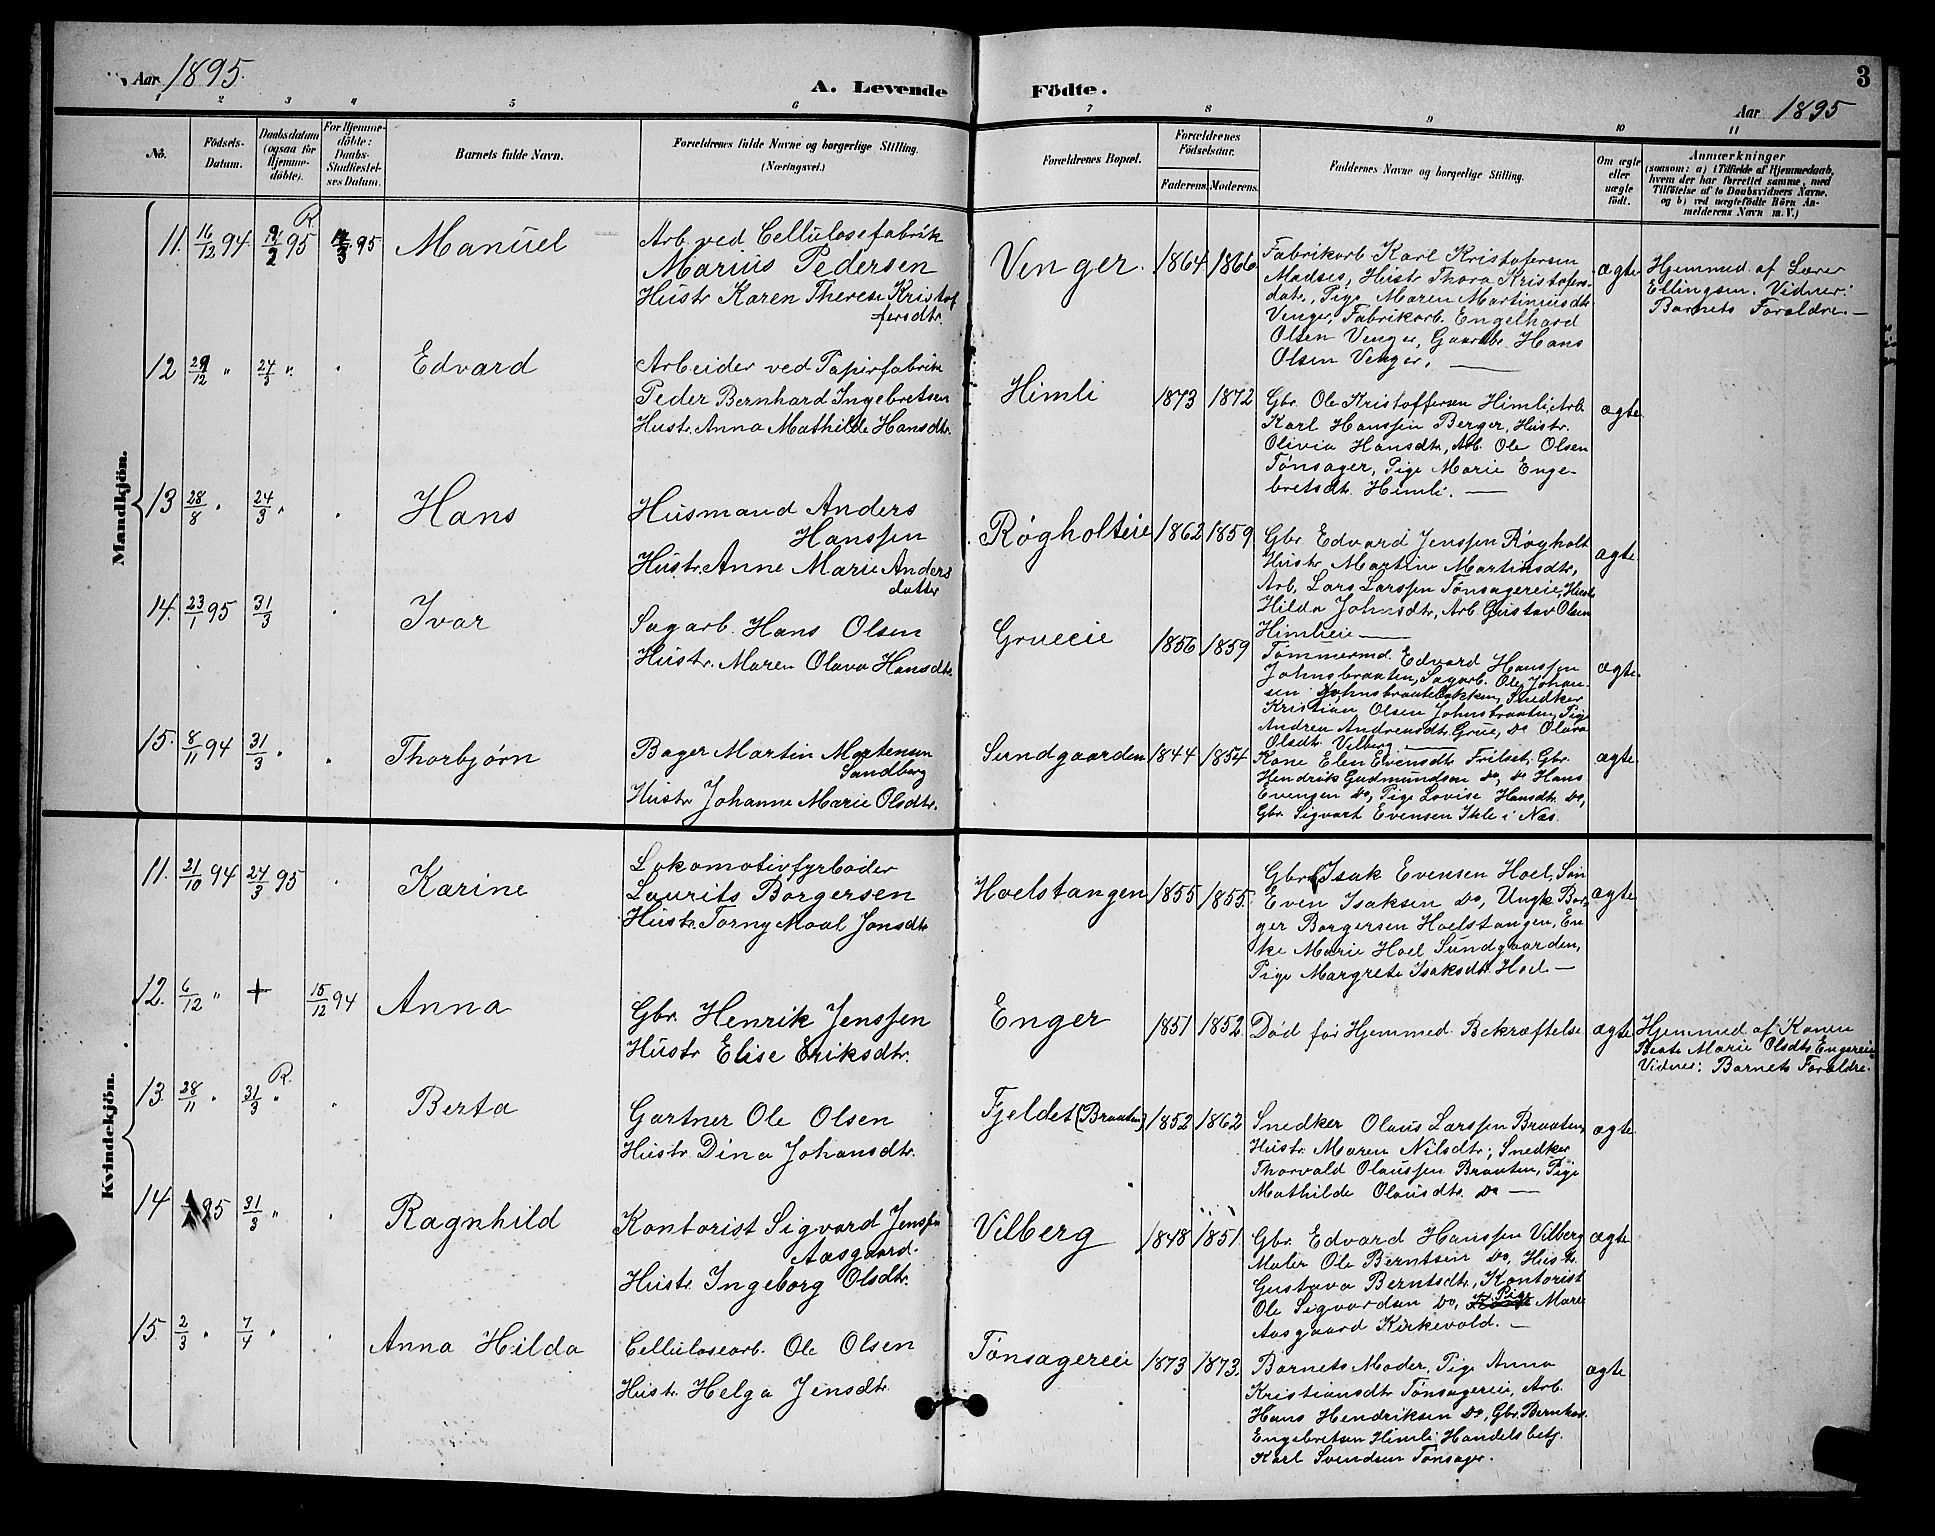 Aar 1895.
A. Levende Födte.
3
Aar 1895
1 2 3 4 5 6 7 8 9 10 11
No.
Födsels-Datum.
Daabsdatum (ogsaa for Hjemme-döbte).
For Hjemme-döbte: Daabs-Stadfæstel-ses Datum.
Barnets fulde Navn.
Forældrenes fulde Navne og borgerlige Stilling. (Næringsvei.)
Forældrenes Bopæl.
Forældrenes Födselsaar.
Faderens. Moderens.
Faddernes Navne og borgerlige Stilling.
Om ægte eller uægte födt.
Anmærkninger
(saasom: a) i Tilfælde af Hjemmedaab,
hvem der har forrettet samme, med
Tilföielse af to Daabsvidners Navne.
og b) ved uægtefödte Börn An-
melderens Navn m. V.)
Mandkjön.
11. 16/12 94 9/2 95 R 3 95 Manuel
Arb. ved Cellulosefabrik
Marius Pedersen
Hustr. Karen Therese Kristof
fersdtr.
Venger. 1864 1866
Fabrikarb. Karl Kristofersen
Madses, Hustr. Thora Kristofers-
datr., Pige Maren Martiniusdtr.
Venger, Fabrikarb. Engelhard
Olsen Venger, Gaardbr. Hans
Olsen Venger.
ægte
Hjemmed. af Lærer
Ellingsen. Vidner:
Barnets Forældre.
12 29/12 " 24/3 " " Edvard
Arbeider ved Papirfabrik
Peder Bernhard Ingebretsen
Hustr. Anna Mathilde Hansdtr.
Himli 1873 1872
Gbr. Ole Kristoffersen Himli, Arb.
Karl Hanssen Berger, Hustr.
Olivia Hansdtr., Arb. Ole Olsen
Tønsager, Pige Marie Enge-
bretsdtr. Himli.
ægte
13 28/8 " 24/3 " " Hans
Husmand Anders
Hanssen
Hustr. Anne Marie Anders
datter
Røgholteie 1862 1859
Gbr. Edvard Jenssen Røgholt
Hustr. Martine Martinsdtr,
Arb. Lars Larssen Tønsagereie, Hustr.
Hilda Johnsdtr, Arb. Gustav Olsen
Himlieie
ægte
14. 23/1 95 31/3 " Ivar
Sagarb. Hans Olsen
Hustr. Maren Olava Hansdtr.
Grueeie 1856 1859
Tømmermd. Edvard Hanssen
Johnsbraaten, Sagarb. Ole Johan-
sen Johnsbraatebakken, Snedker
Kristian Olsen Johnsbraaten, Pige
Andrea Andreasdtr. Grue, Do Olava
Olsdtr. Vilberg
ægte
15. 8/11 94 31/3 " " Thorbjørn
Bager Martin Mortensen
Sandberg
Hustr. Johanne Marie Olsdtr.
Sundgaarden 1844 1854
Kone Elen Evensdtr. Frilset, Gbr.
Hendrik Gudmundsen Do, Do Hans
Evensen Do, Pige Lovise Hansdtr. Do,
Gbr. Sigvart Evensen Ihle i Næs.
ægte
Kvindekjön.
11. 21/10 94 24/3 95 " Karine
Lokomotivfyrbøder
Laurits Borgersen
Hustr. Torny Moal Jonsdtr
Hoelstangen 1855 1855.
Gbr. Isak Evensen Hoel, Søn
Even Isaksen Do, Ungk. Bor-
ger Borgersen Hoelstangen, En-
ke Marie Hoel Sundgaarden,
Pige Margrete Isaksdtr. Hoel
ægte
12. 6/12 " + 15/12 94 Anna
Gbr. Henrik Jenssen
Hustr. Elise Eriksdtr.
Enger 1851 1852
Død før Hjemmed. Bekræftelse
ægte
Hjemmed. af Konen
Beate Marie Olsdtr. Engereie
Vidner: Barnets Forældre.
13. 28/11 " 31/3 R. " " Berta
Gartner Ole Olsen
Hustr. Dina Johansdtr.
Fjeldet (Braaten) 1852 1862
Snedker Olaus Larssen Braaten,
Hustr. Maren Nilsdtr; Snedker
Thorvald Olaussen Braaten, Pige
Mathilde Olausdtr. Do
ægte
14 95 31/3 " " Ragnhild
Kontorist Sigvard Jenssen
Aasgaard.
Hustr. Ingeborg Olsdtr.
Vilberg 1848 1851.
Gbr. Edvard Hanssen Vilberg
Maler Ole Berntsen Do, Hustr.
Gustava Berntsdtr, Kontorist
Ole Sigvardsen Do, Pige Marie
Aasgaard Kirkevold.
ægte
15. 2/3 " 7/4 " " Anna Hilda
Cellulosearb. Ole Olsen
Hustr. Helga Jensdtr.
Tønsagereie 1873 1873.
Barnets Moder, Pige Anna
Kristiansdtr Tønsagereie, Arb.
Hans Hendriksen Do, Gbr. Bernhar.
Engebretsen Himli, Handelsbetj.
Karl Svendsen Tønsager.
ægte